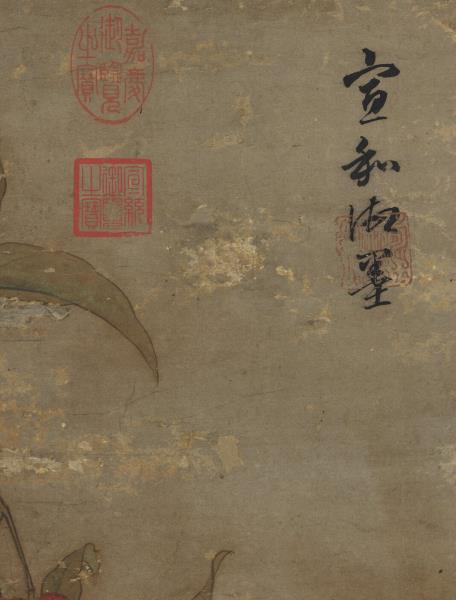 宣和御墨
嘉慶御覽之寶
宣統御覽之寶